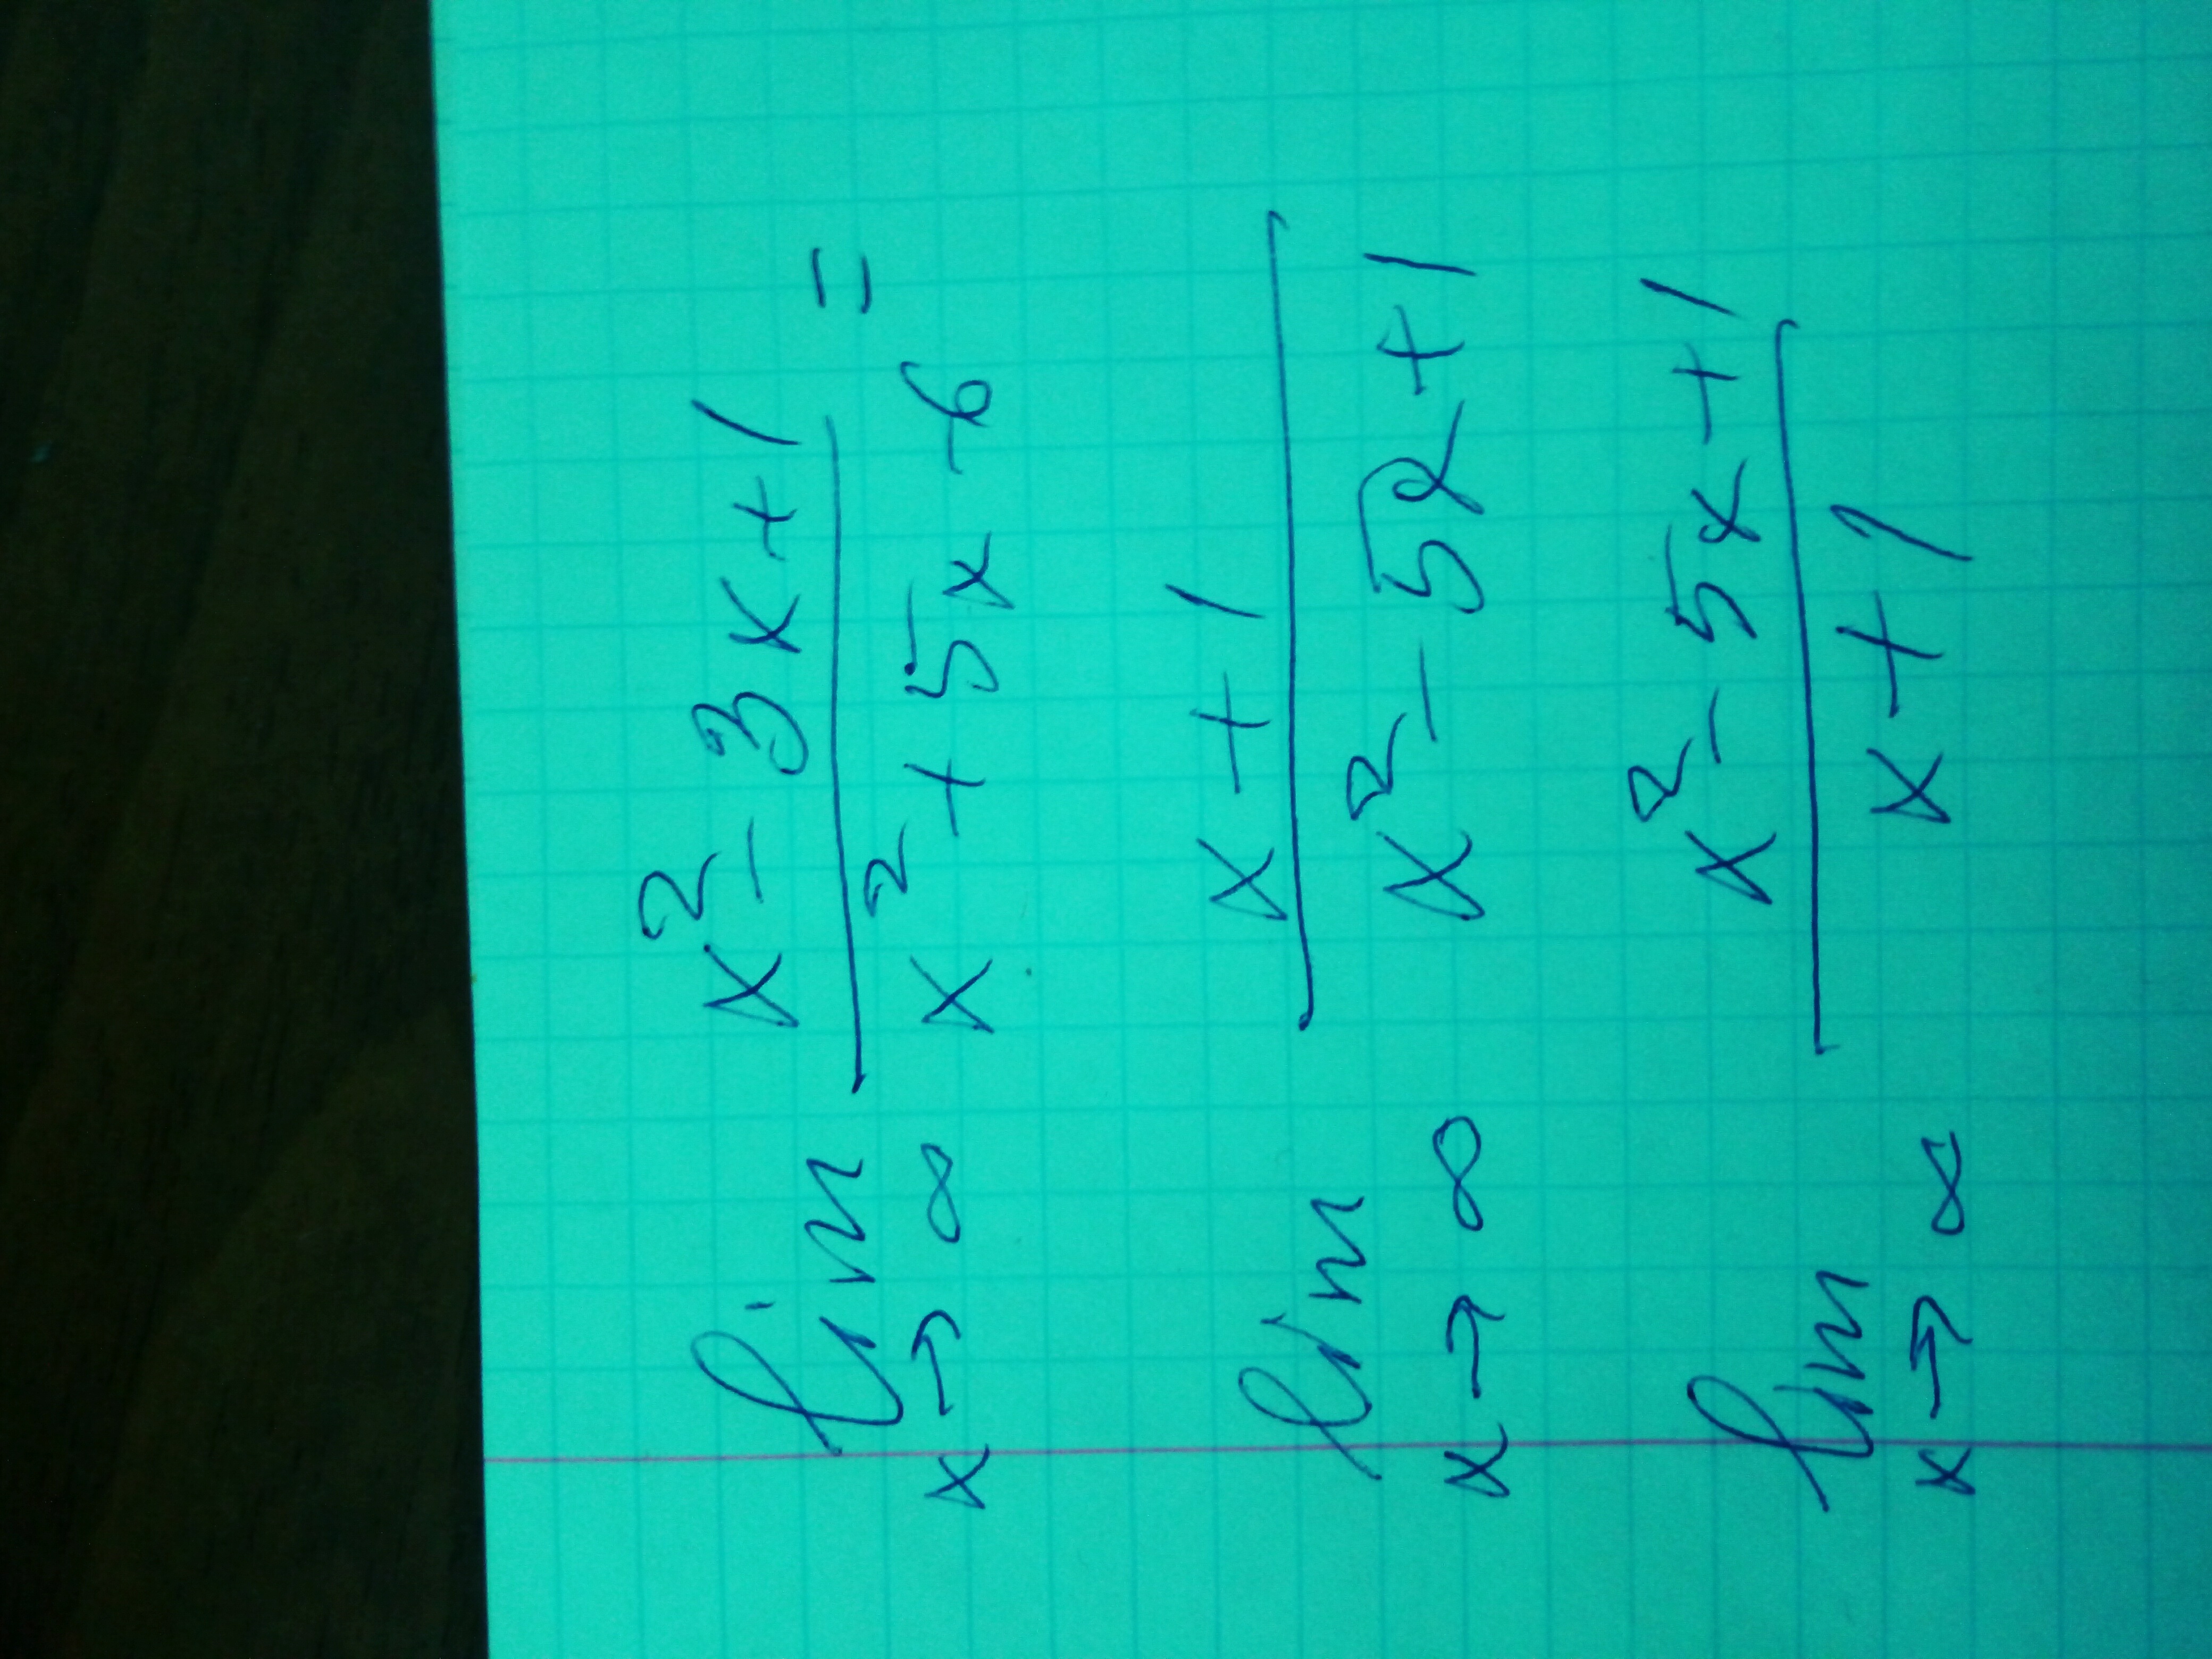 lim x→∞ (x² - 3x + 1)/(x² + 5x - 6) =
lim x→∞ (x + 1)/(x² - 5x + 1)
lim x→∞ (x² - 5x + 1)/(x + 1)